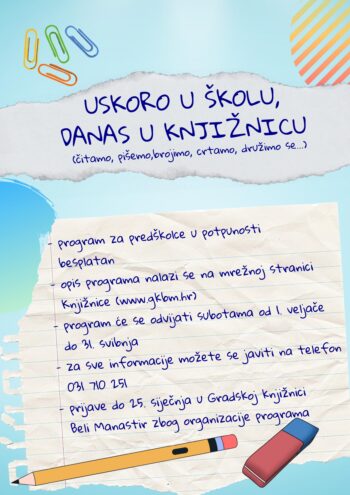 USKORO U ŠKOLU,
DANAS U KNJIŽNICU
(čitamo, pišemo,brojimo, crtamo, družimo se...)
- program za predškolce u potpunosti
besplatan
- opis programa nalazi se na mrežnoj stranici
Knjižnice (www.gkbm.hr)
- program će se odvijati subotama od 1. veljače
do 31. svibnja
- za sve informacije možete se javiti na telefon
031 710 251
- prijave do 25. siječnja u Gradskoj knjižnici
Beli Manastir zbog organizacije programa